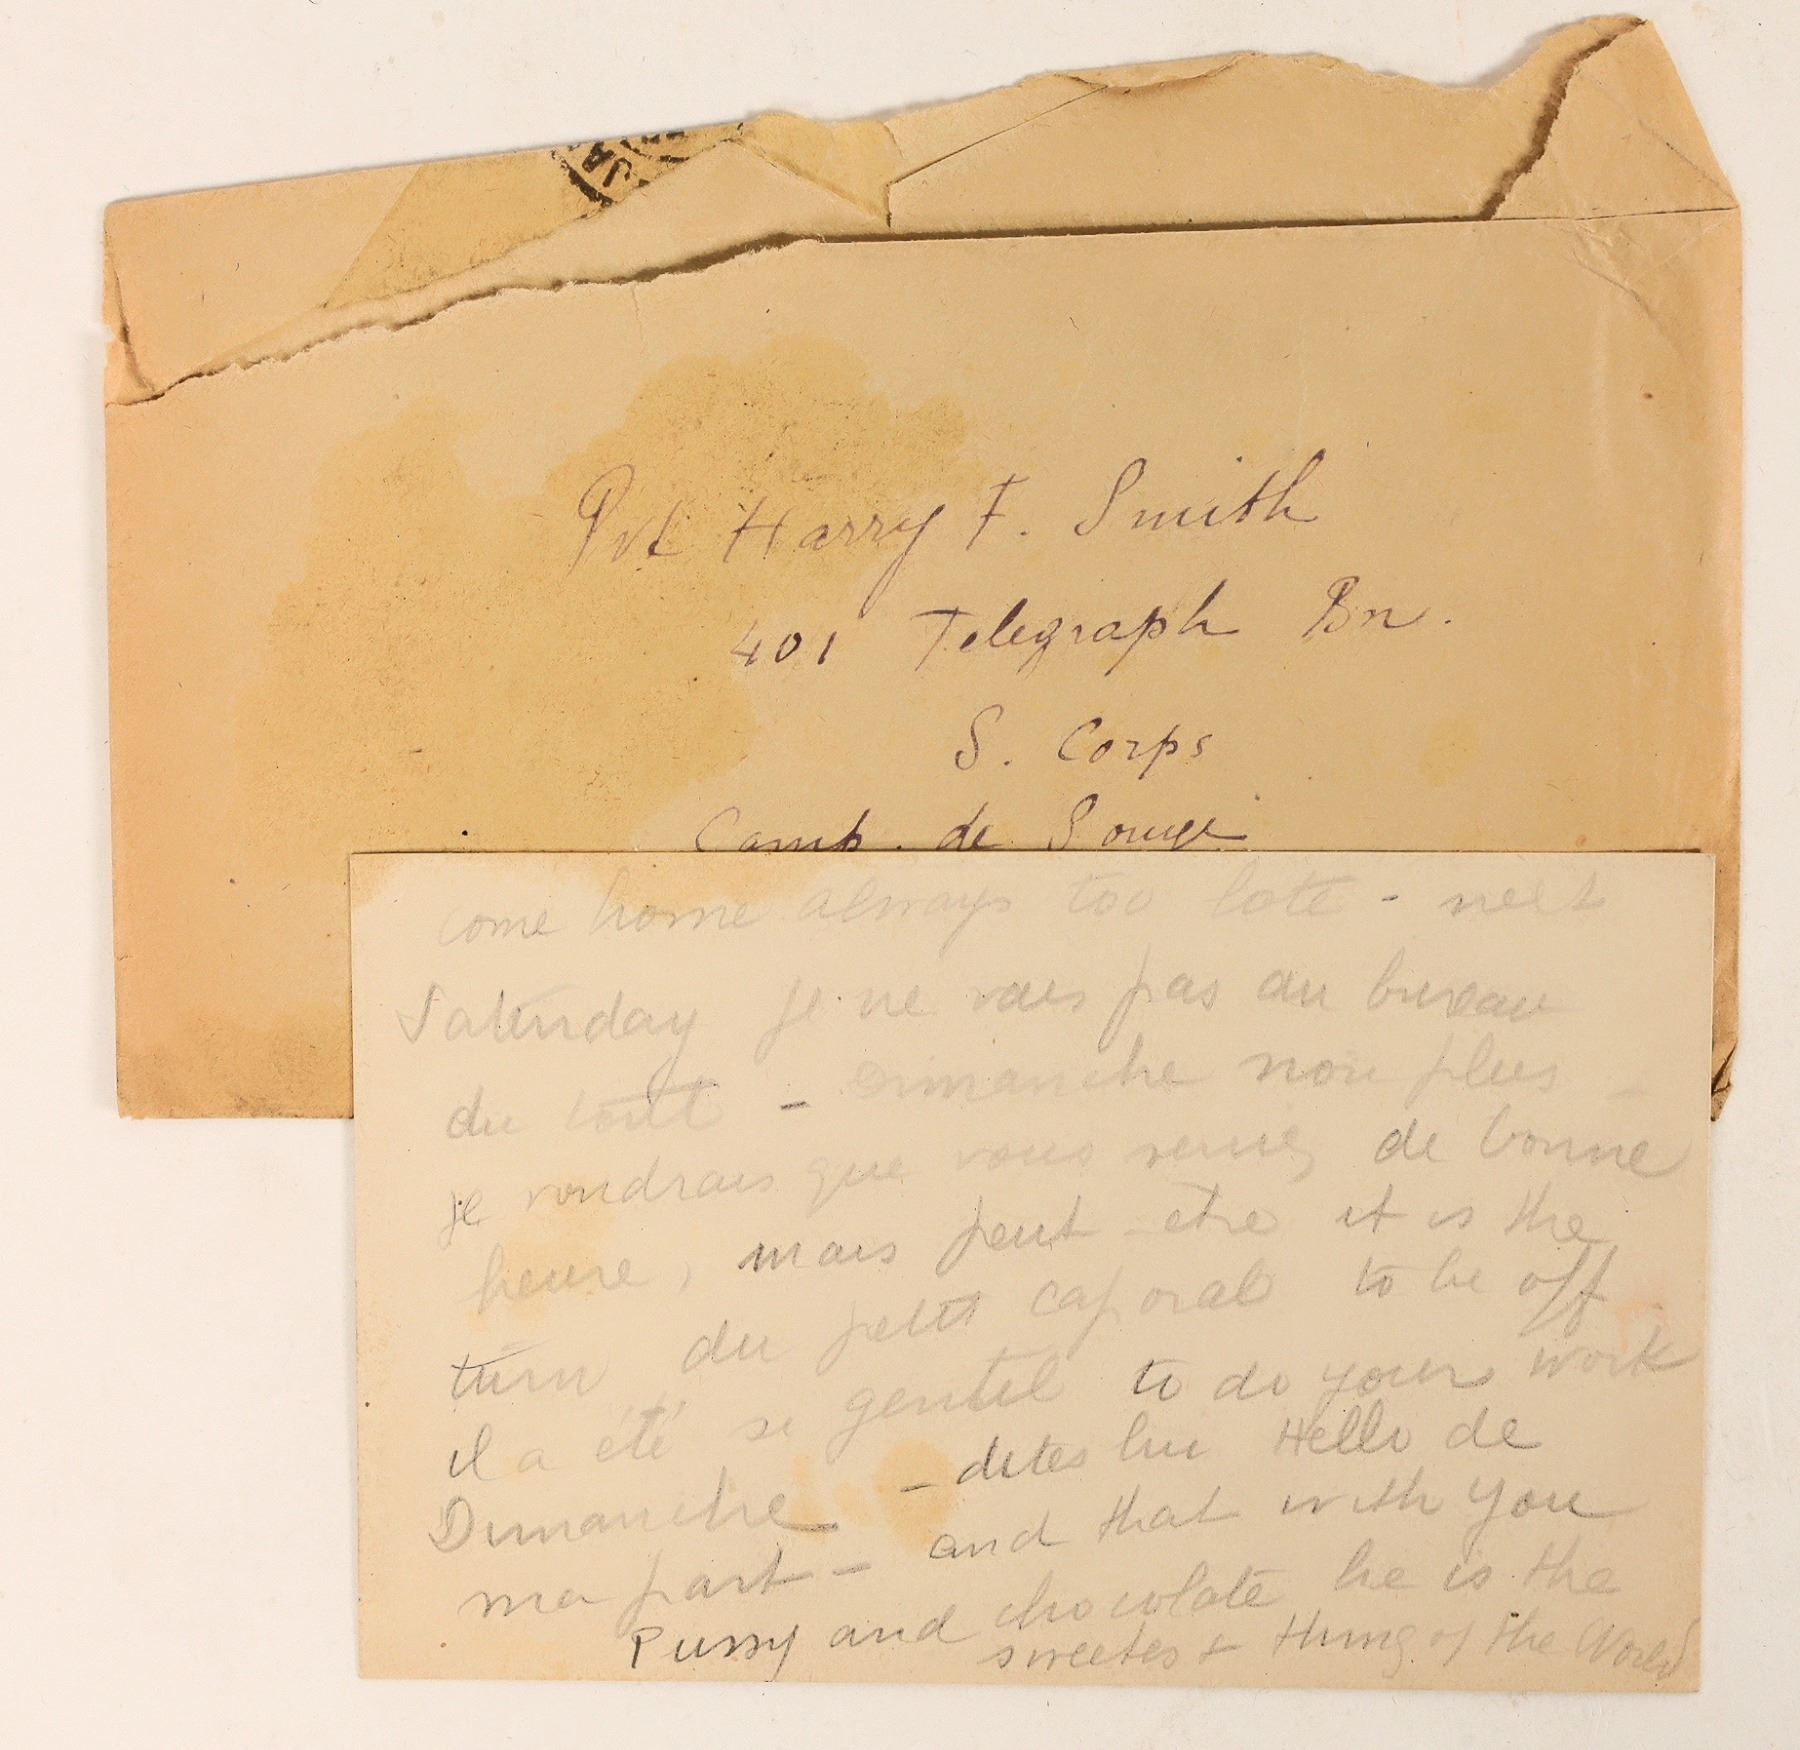 JA
Pvt Harry F. Smith
401 Telegraph Bn.
S. Corps
Camp. de Souge
come home always too late - next
Saturday je ne vais pas au bureau
du tout - Dimanche non plus -
je voudrais que vous veniez de bonne
heure, mais peut-etre it is the
turn du petit caporal to be off
il a été si gentil to do your work
Dimanche - dites lui Hello de
ma part - and that with you
Pussy and chocolate he is the
sweetest thing of the World